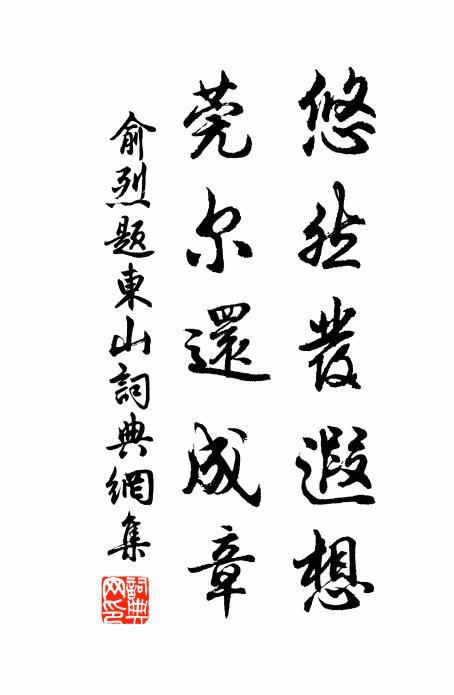 悠然發遐想
莞尔還成章
俞烈题東山詞典網集
詞典网印